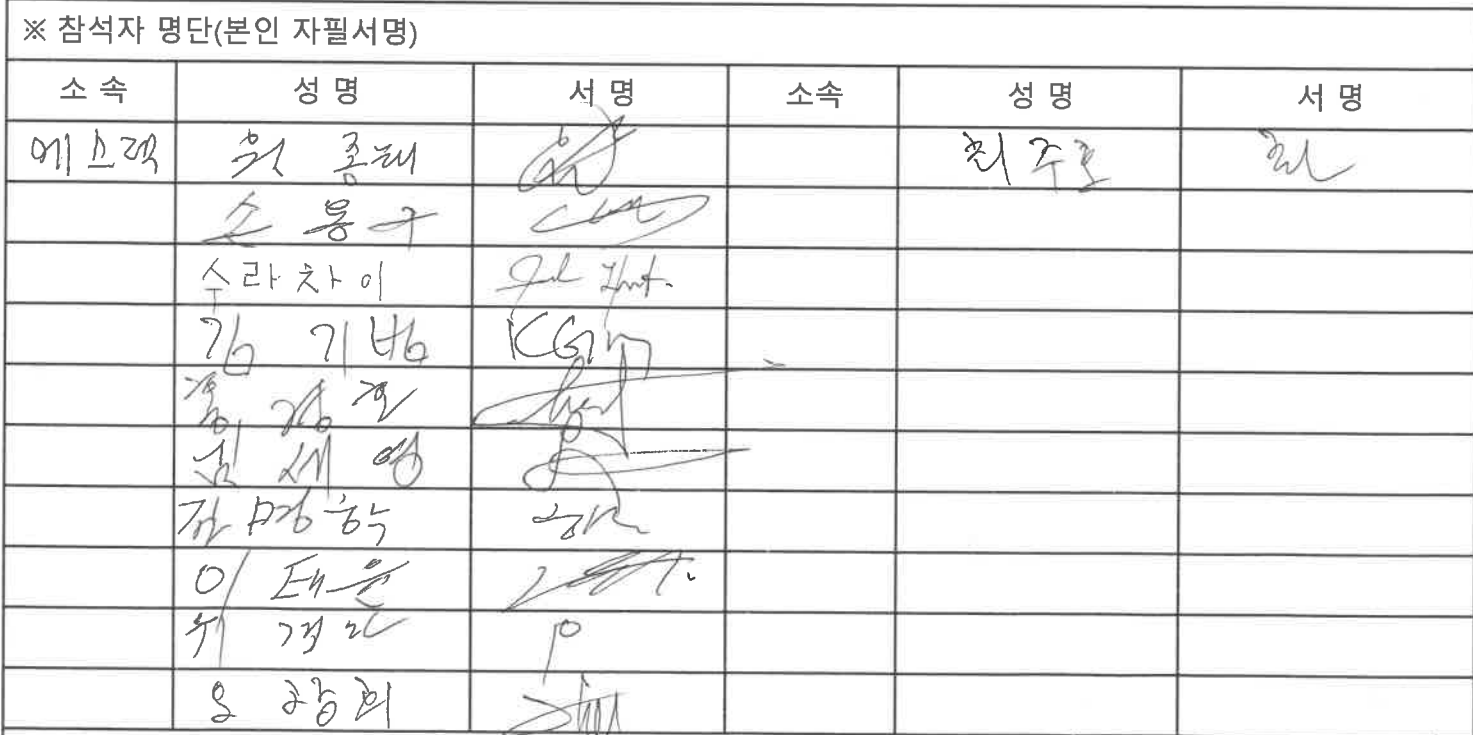 ※ 참석자 명단(본인 자필서명)
소 속 성 명 서 명 소속 성 명 서 명
에스텍 원 종태 최주호 최
손 용구
수라차이
김 기범 KGm
홍 경호
심 세영
김명학
이 태윤
위 경환
오 광희